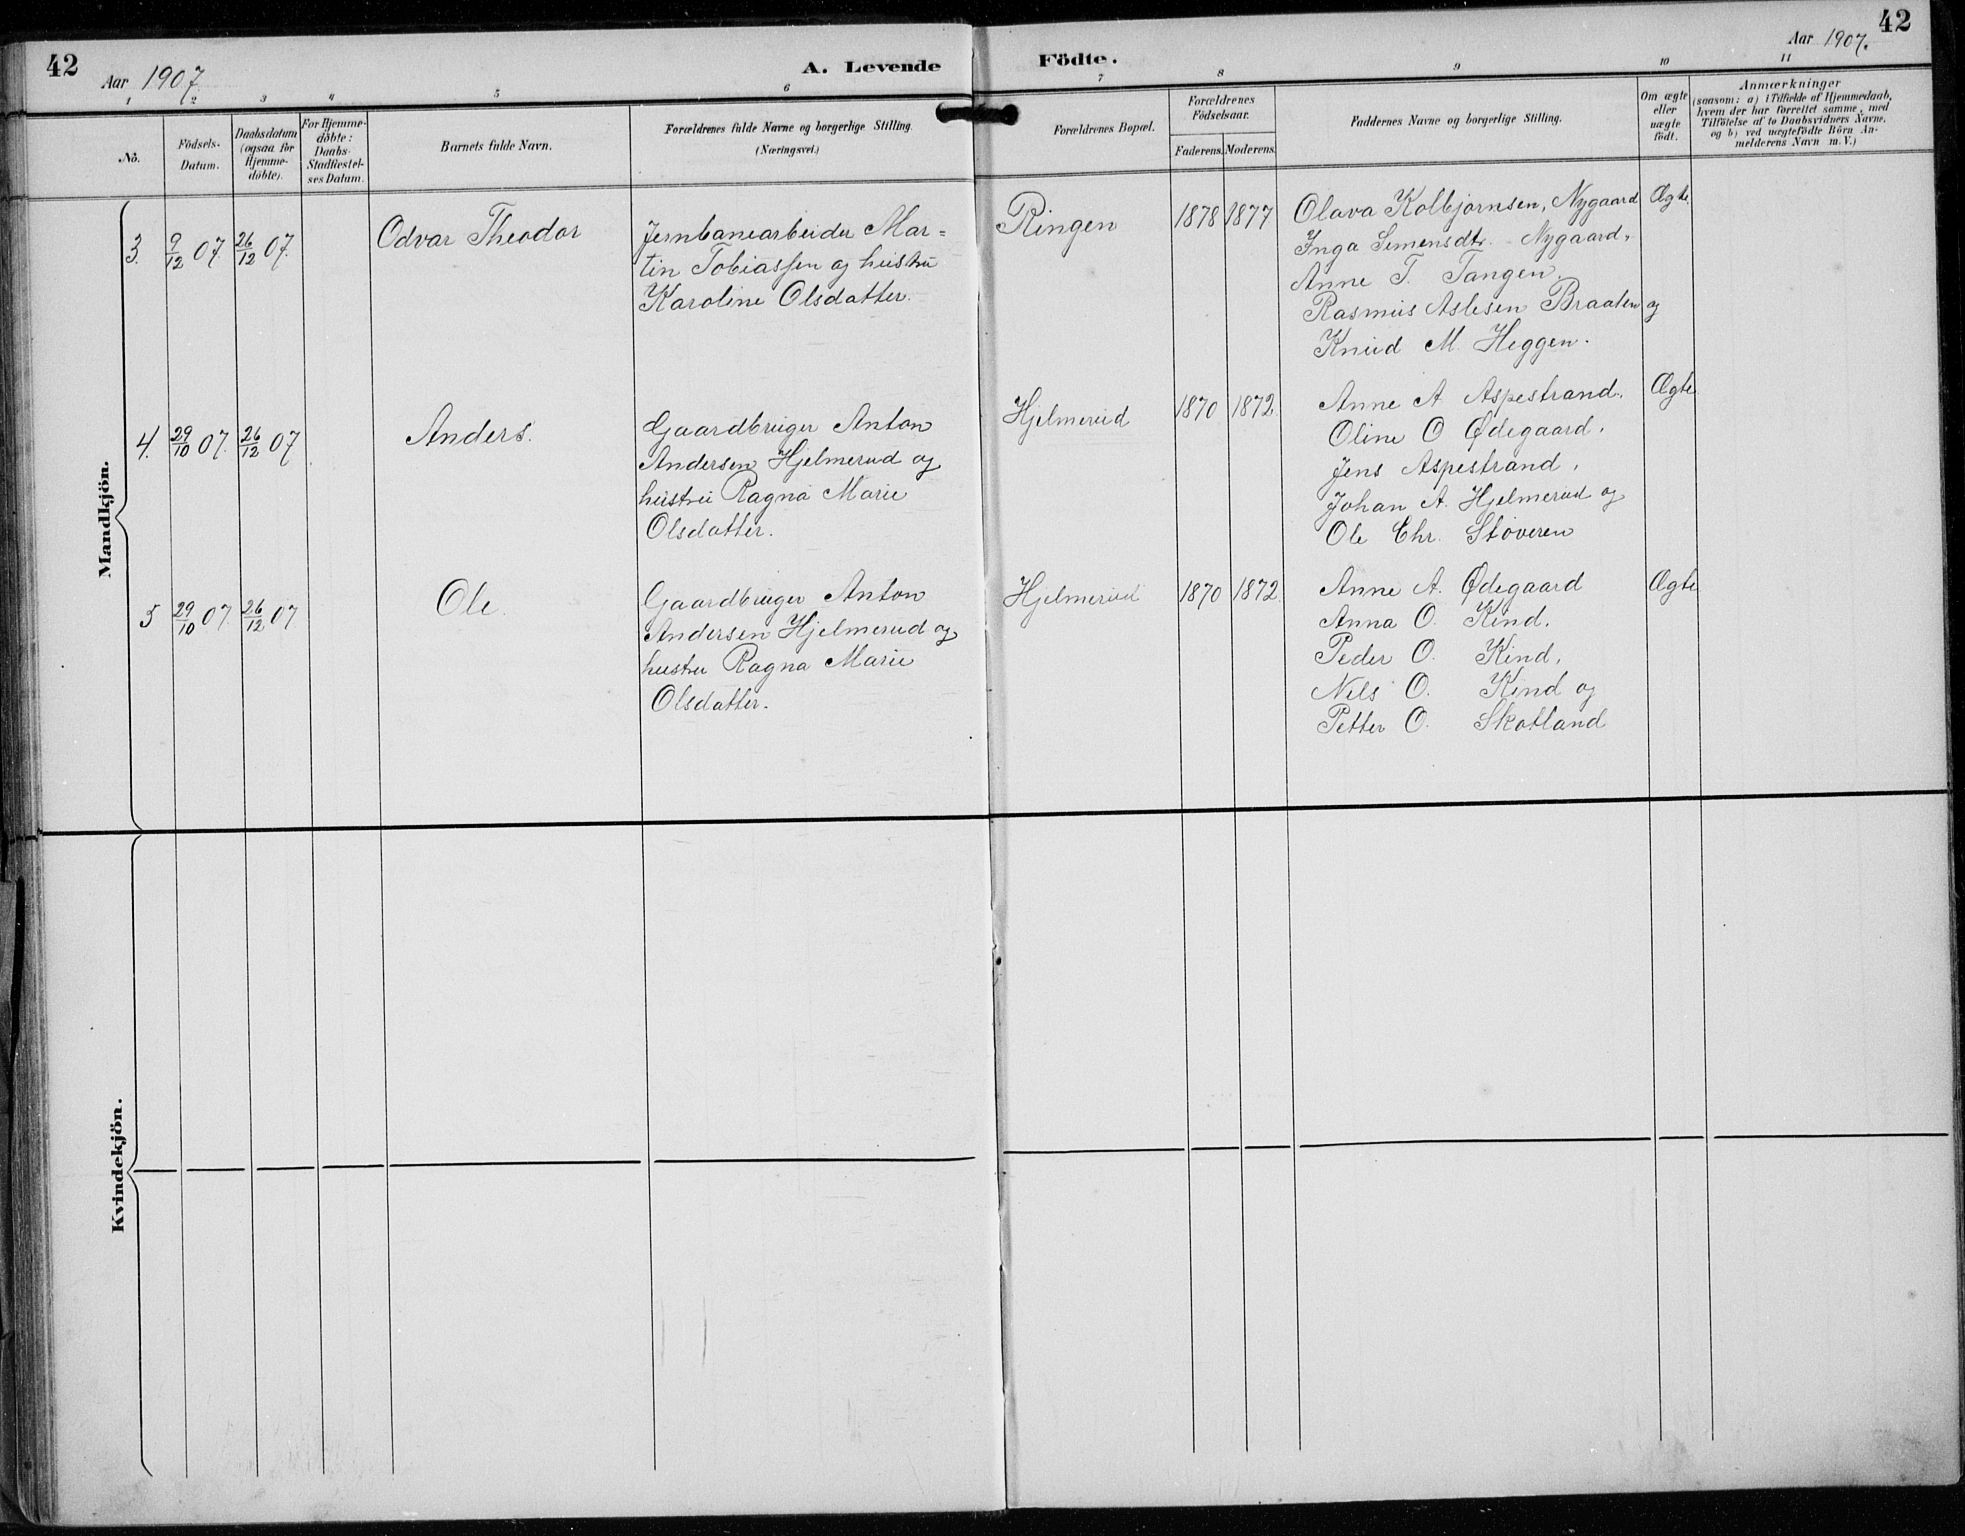 42
Aar 1907.
A. Levende
Födte.
Aar 1907.
42
1 2 3 4 5 6 7 8 9 10 11
No.
Födsels-
Datum.
Daabsdatum
(ogsaa for
Hjemme-
döbte).
For Hjemme-
döbte:
Daabs-
Stadfæstel-
ses Datum.
Barnets fulde Navn.
Forældrenes fulde Navne og borgerlige Stilling.
(Næringsvei.)
Forældrenes Bopæl.
Forældrenes
Födselsaar.
Faderens. Moderens.
Faddernes Navne og borgerlige Stilling.
Om ægte
eller
uægte
födt.
Anmærkninger
(saasom: a) i Tilfælde af Hjemmedaab,
hvem der har forrettet samme, med
Tilföielse af to Daabsvidners Navne,
og b) ved uægtefödte Börn An-
melderens Navn m. V.)
Mandkjön.
3. 9/12 07. 26/12 07. Odvar Theodor
Jernbanearbeider Mar=
tin Tobiassen og hustru
Karoline Olsdatter.
Ringen 1878 1877
Olava Kolbjørnsen, Nygaard
Inga Simensdtr. Nygaard,
Anne T. Tangen,
Rasmus Aslesen Braaten og
Knud M. Heggen.
Ægte
4. 29/10 07. 26/12 07 Anders.
Gaardbruger Anton
Andersen Hjelmerud og
hustru Ragna Marie
Olsdatter.
Hjelmerud 1870 1872.
Anne A Aspestrand.
Oline O Ødegaard.
Jens Aspestrand,
Johan A. Hjelmerud og
Ole Chr. Støveren
Ægte
5 29/10 07. 26/12 07 Ole.
Gaardbruger Anton
Andersen Hjelmerud og
hustru Ragna Marie
Olsdatter.
Hjelmerud 1870 1872.
Anne A. Ødegaard
Anna O. Kind.
Peder O. Kind,
Nils O. Kind og
Petter O. Skotland
Ægte
Kvindekjön.